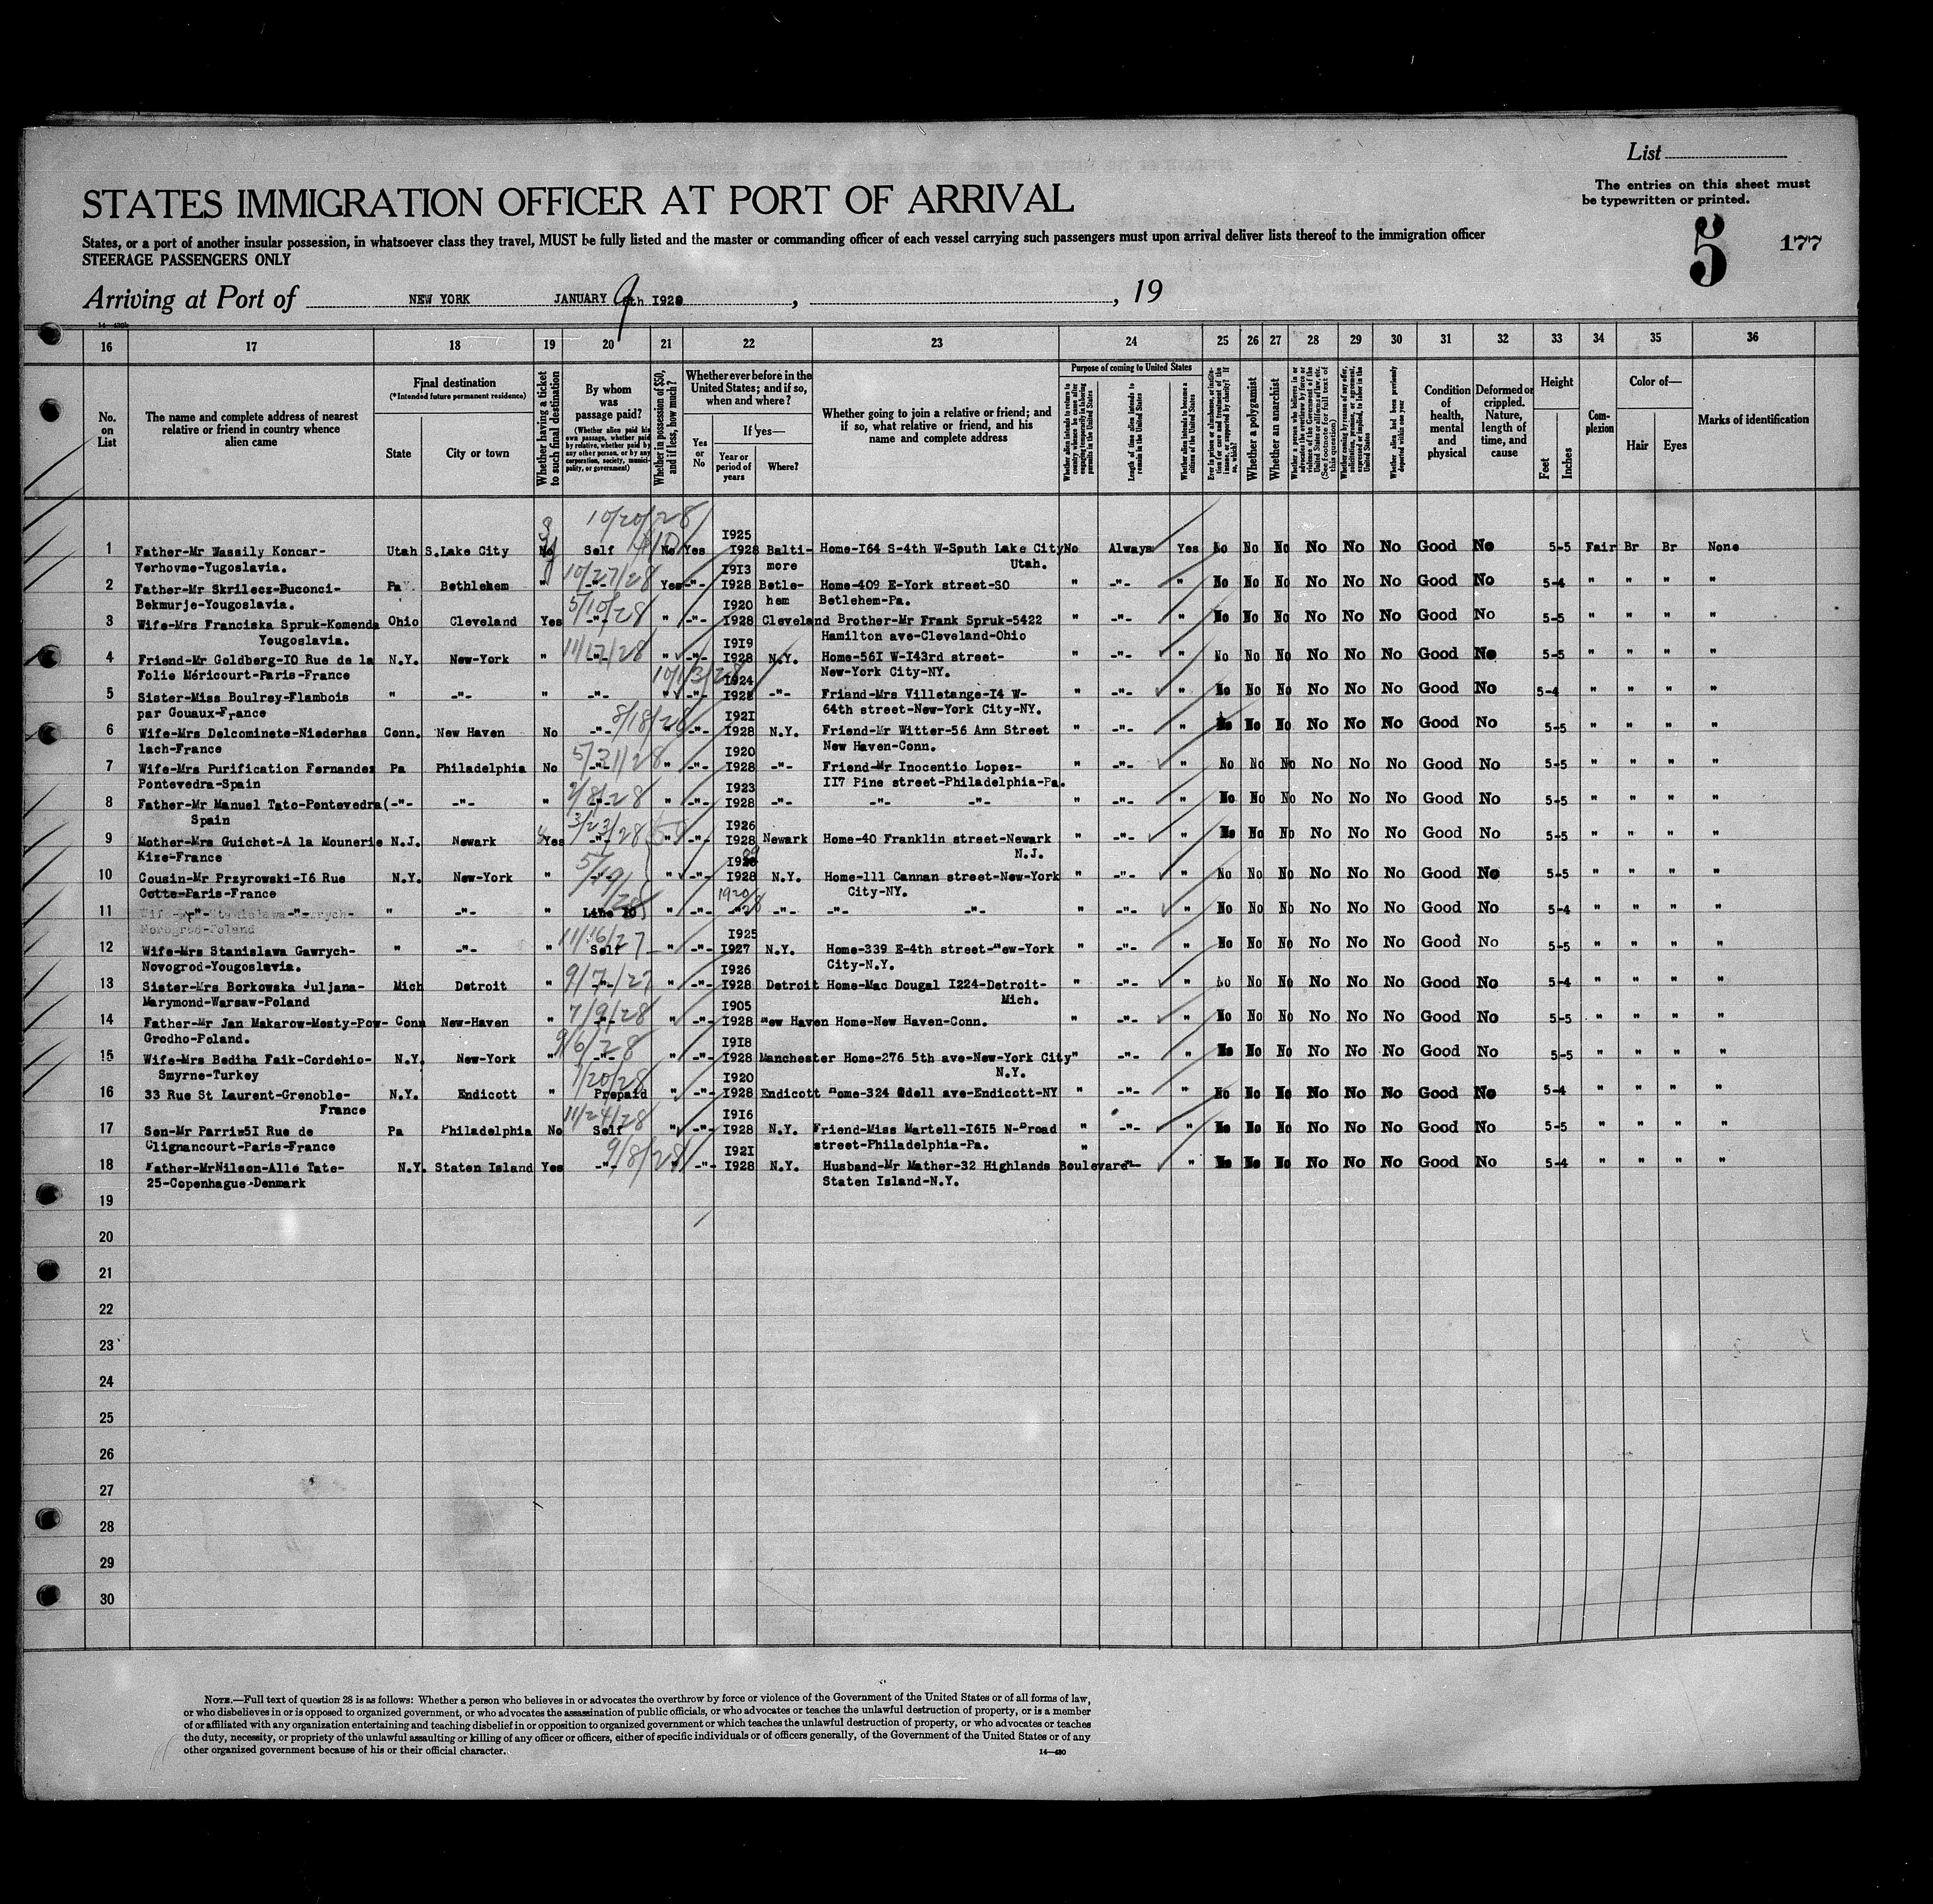 List
The entries on this sheet must
be typewritten or printed.
STATES IMMIGRATION OFFICER AT PORT OF ARRIVAL
5
177
States, or a port of another insular possession, in whatsoever class they travel, MUST be fully listed and the master or commanding officer of each vessel carrying such passengers must upon arrival deliver lists thereof to the immigration officer
STEERAGE PASSENGERS ONLY
Arriving at Port of NEW YORK JANUARY 9th , , 19
16 17 18 19 20 21 22 23 24 25 26 27 28 29 30 31 32 33 34 35 36
No. on List
The name and complete address of nearest
relative or friend in country whence
alien came
Final destination
(*Intended future permanent residence)
State
City or town
Whether having a ticket
to such final destination
By whom
was
passage paid?
(Whether alien paid his
own passage, whether paid
by relative, whether paid by
any other person, or by any
corporation, society, munici-
pality, or government)
Whether in possession of $50,
and if less, how much?
Whether ever before in the
United States; and if so,
when and where?
Yes
or
No
If yes—
Year or
period of
years
Where?
Whether going to join a relative or friend; and
if so, what relative or friend, and his
name and complete address
Purpose of coming to United States
Length of time alien intends to
remain in the United States
Whether alien intends to become a
citizen of the United States
Whether a polygamist
Whether an anarchist
Whether alien had been previously
deported within one year
Condition
of
health,
mental
and
physical
Deformed or
crippled.
Nature,
length of
time, and
cause
Height
Feet
Inches
Com-
plexion
Color of—
Hair
Eyes
Marks of identification
10/20/28
I925
1 Father-Mr Wassily Koncar- Utah S.Lake City No Self No Yes I928 Balti- Home-I64 S-4th W-South Lake City No Always Yes No No No No No No Good No 5-5 Fair Br Br None
Verhovme-Yugoslavia. I9I3 more Utah.
10/27/28
2 Father-Mr Skrilecz-Buconci- Pa Bethlehem " -"- Yes -"- I928 Betle- Home-409 E-York street-SO " -"- " No No No No No No Good No 5-4 " " " "
Bekmurje-Yougoslavia. I920 hem Betlehem-Pa.
5/10/28
3 Wife-Mrs Franciska Spruk-Komenda Ohio Cleveland Yes -"- " -"- I928 Cleveland Brother-Mr Frank Spruk-5422 " -"- " No No No No No No Good No 5-5 " " " "
Yeugoslavia. I9I9 Hamilton ave-Cleveland-Ohio
11/17/28
4 Friend-Mr Goldberg-IO Rue de la N.Y. New-York " -"- " -"- I928 N.Y. Home-56I W-I43rd street- " -"- " No No No No No No Good No 5-5 " " " "
Folie Méricourt-Paris-France I924 New-York City-NY.
10/13/28
5 Sister-Miss Boulrey-Flambois " -"- " -"- " -"- I928 -"- Friend-Mrs Villetange-I4 W- " -"- " No No No No No No Good No 5-4 " " " "
par Gouaux-France I92I 64th street-New-York City-NY.
8/18/28
6 Wife-Mrs Delcominete-Niederhas Conn. New Haven No -"- " -"- I928 N.Y. Friend-Mr Witter-56 Ann Street " -"- " No No No No No No Good No 5-5 " " " "
lach-France I920 New Haven-Conn.
5/31/28
7 Wife-Mrs Purification Fernandez Pa Philadelphia No -"- " -"- I928 -"- Friend-Mr Inocentio Lopez- " -"- " No No No No No No Good No 5-5 " " " "
Pontevedra-Spain I923 II7 Pine street-Philadelphia-Pa.
8 Father-Mr Manuel Tato-Pontevedra( -"- -"- " -"- " -"- I928 -"- -"- -"- " -"- " No No No No No No Good No 5-5 " " " "
Spain I926
3/23/28
9 Mother-Mrs Guichet-A la Mounerie N.J. Newark Yes -"- " -"- I928 Newark Home-40 Franklin street-Newark " -"- " No No No No No No Good No 5-5 " " " "
Kize-France N.J.
5/19/28
10 Cousin-Mr Przyrowski-I6 Rue N.Y. New-York " -"- " -"- I928 N.Y. Home-111 Cannan street-New-York " -"- " No No No No No No Good No 5-5 " " " "
Cotte-Paris-France 1920/ City-NY.
11 -"- -"- " -"- " Line IO " -"- -"- -"- -"- -"- " -"- " No No No No No No Good No 5-4 " " " "
11/16/27 I925
12 Wife-Mrs Stanislawa Gawrych- " -"- " Self " -"- I927 N.Y. Home-339 E-4th street-New-York " -"- " No No No No No No Good No 5-5 " " " "
Novogrod-Yougoslavia. I926 City-N.Y.
9/7/27
13 Sister-Mrs Borkowska Juljana- Mich Detroit " -"- " -"- I928 Detroit Home-Mac Dougal I224-Detroit- " -"- " No No No No No No Good No 5-4 " " " "
Marymond-Warsaw-Poland I905 Mich.
7/9/28
14 Father-Mr Jan Makarow-Mosty-Pow- Conn New-Haven " -"- " -"- I928 New Haven Home-New Haven-Conn. " -"- " No No No No No No Good No 5-5 " " " "
Grodho-Poland. I9I8
9/6/28
15 Wife-Mrs Bediha Faik-Cordehio- N.Y. New-York " -"- " -"- I928 Manchester Home-276 5th ave-New-York City " -"- " No No No No No No Good No 5-5 " " " "
Smyrne-Turkey I920 N.Y.
1/20/28
16 33 Rue St Laurent-Grenoble- N.Y. Endicott " Prepaid " -"- I928 Endicott Home-324 Odell ave-Endicott-NY " -"- " No No No No No No Good No 5-4 " " " "
France I9I6
11/24/28
17 Son-Mr Parrin5I Rue de Pa Philadelphia No Self " -"- I928 N.Y. Friend-Miss Martell-I6I5 N-Broad " -"- " No No No No No No Good No 5-5 " " " "
Clignancourt-Paris-France I92I street-Philadelphia-Pa. "
9/8/28
18 Father-MrNilsen-Alle Tate- N.Y. Staten Island Yes -"- " -"- I928 N.Y. Husband-Mr Mather-32 Highlands Boulevard -"- " No No No No No No Good No 5-4 " " " "
25-Copenhague-Denmark Staten Island-N.Y.
19
20
21
22
23
24
25
26
27
28
29
30
NOTE.—Full text of question 28 is as follows: Whether a person who believes in or advocates the overthrow by force or violence of the Government of the United States or of all forms of law,
or who disbelieves in or is opposed to organized government, or who advocates the assassination of public officials, or who advocates or teaches the unlawful destruction of property, or is a member
of or affiliated with any organization entertaining and teaching disbelief in or opposition to organized government or which teaches the unlawful destruction of property, or who advocates or teaches
the duty, necessity, or propriety of the unlawful assaulting or killing of any officer or officers, either of specific individuals or of officers generally, of the Government of the United States or of any
other organized government because of his or their official character.
14—430